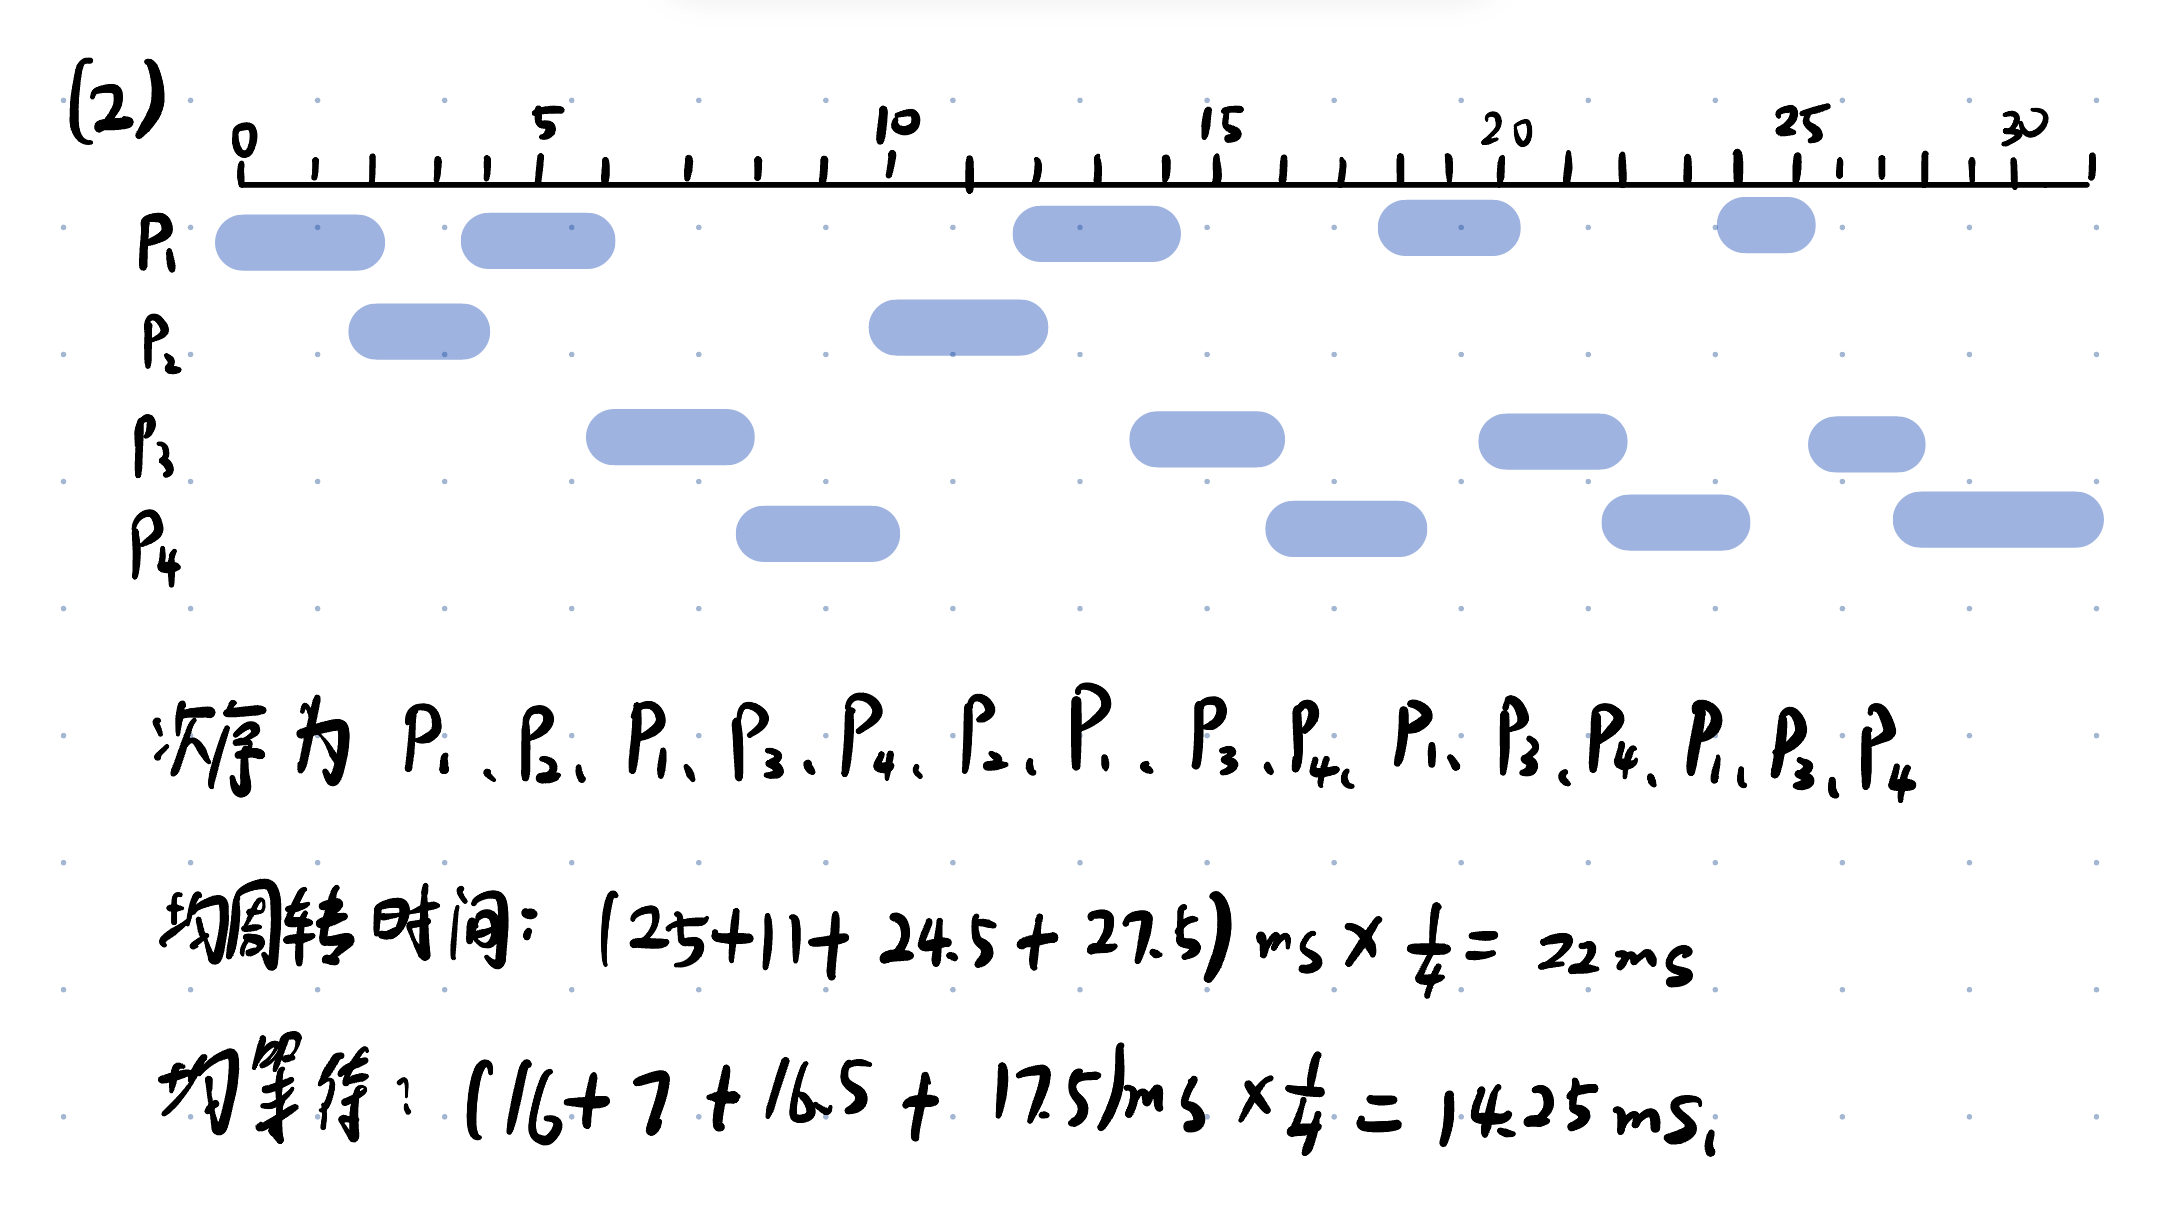 (2)
0 5 10 15 20 25 30
P₁
P₂
P₃
P₄
次序为 P₁、P₂、P₁、P₃、P₄、P₂、P₁、P₃、P₄、P₁、P₃、P₄、P₁、P₃、P₄
均周转时间: (25+11+24.5+27.5) ms × 1/4 = 22ms
均等待: (16+7+16.5+17.5)ms × 1/4 = 14.25ms,